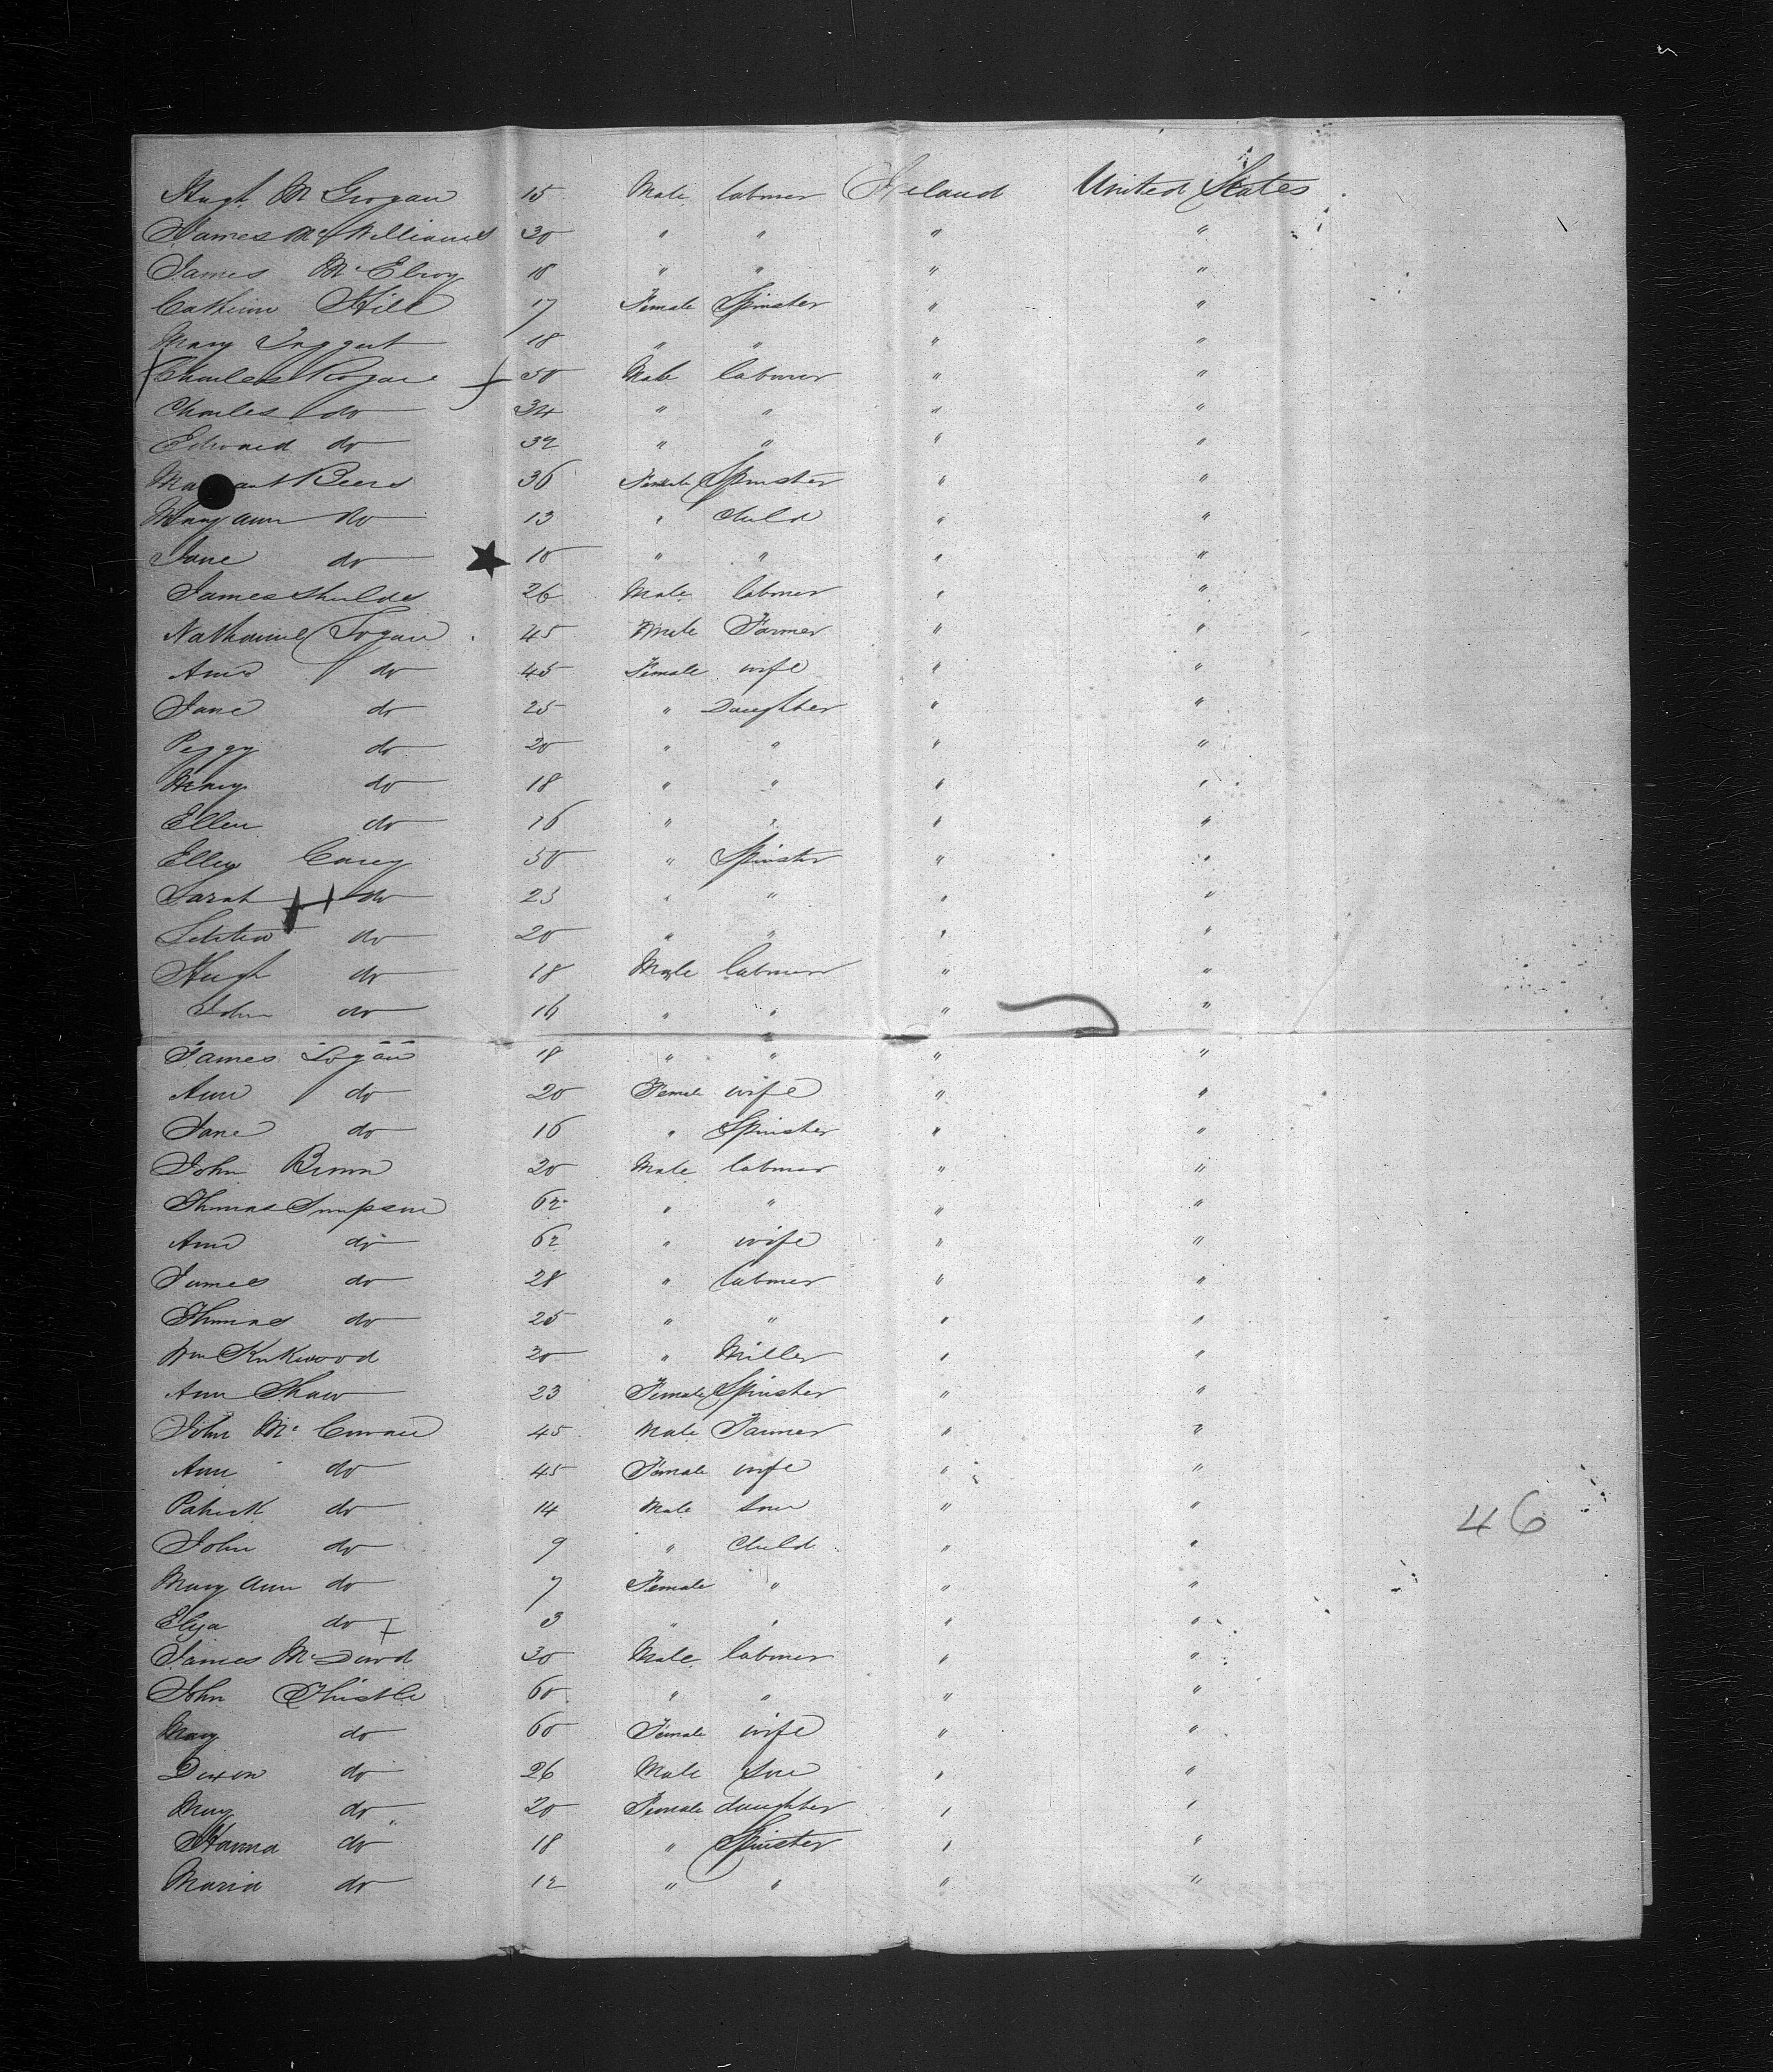 Hugh McGrogan 15 Male labourer Ireland United States
James McWilliams 30 " " " "
James McElroy 18 " " " "
Catherine Hill 17 Female Spinster " "
Mary Taggert 18 " " " "
Charles Rogan 50 Male labourer " "
Charles do 34 " " " "
Edward do 32 " " " "
Ma aut Beers 36 Female Spinster " "
Mary Ann do 13 " Child " "
Jane do 10 " " " "
James Shulds 26 Male labourer " "
Nathaniel Logan 45 Male Farmer " "
Ann do 45 Female wife " "
Jane do 25 " Daughter " "
Peggy do 20 " " " "
Mary do 18 " " " "
Ellen do 16 " " " "
Ellen Carey 50 " Spinster " "
Sarah do 23 " " " "
Letitia do 20 " " " "
Hugh do 18 Male labourer " "
John do 16 " " " "
James Logan 18 " " " "
Ann do 20 Female wife " "
Jane do 16 " Spinster " "
John Brown 20 Male labourer " "
Thomas Simpson 62 " " " "
Ann do 62 " wife " "
James do 28 " labourer " "
Thomas do 25 " " " "
Wm Kirkwood 20 " Miller " "
Ann Shaw 23 Female Spinster " "
John Mc 45 Male Farmer " "
Ann do 45 Female wife " "
Patrick do 14 Male Son " "
John do 9 " Child " "
46
Mary Ann do 7 Female " " "
Eliza do 3 " " " "
James McDavid 30 Male labourer " "
John Thistle 60 " " " "
Mary do 60 Female wife " "
Dixon do 26 Male Son " "
Mary do 20 Female daughter " "
Hanna do 18 " Spinster " "
Maria do 12 " " " "